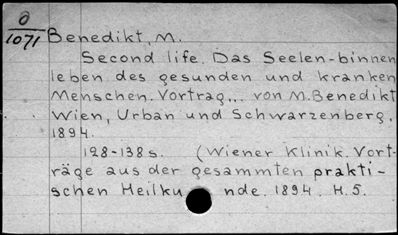 O
1071
Benedikt, M.
Second life. Das Seelen-binnen
leben des gesunden und kranken
Menschen. Vortrag... von M. Benedikt
Wien, Urban und Schwarzenberg,
1894.
128-138 s. (Wiener Klinik. Vort-
räge aus der gesammten prakti-
schen Heilkunde. 1894. H.5.